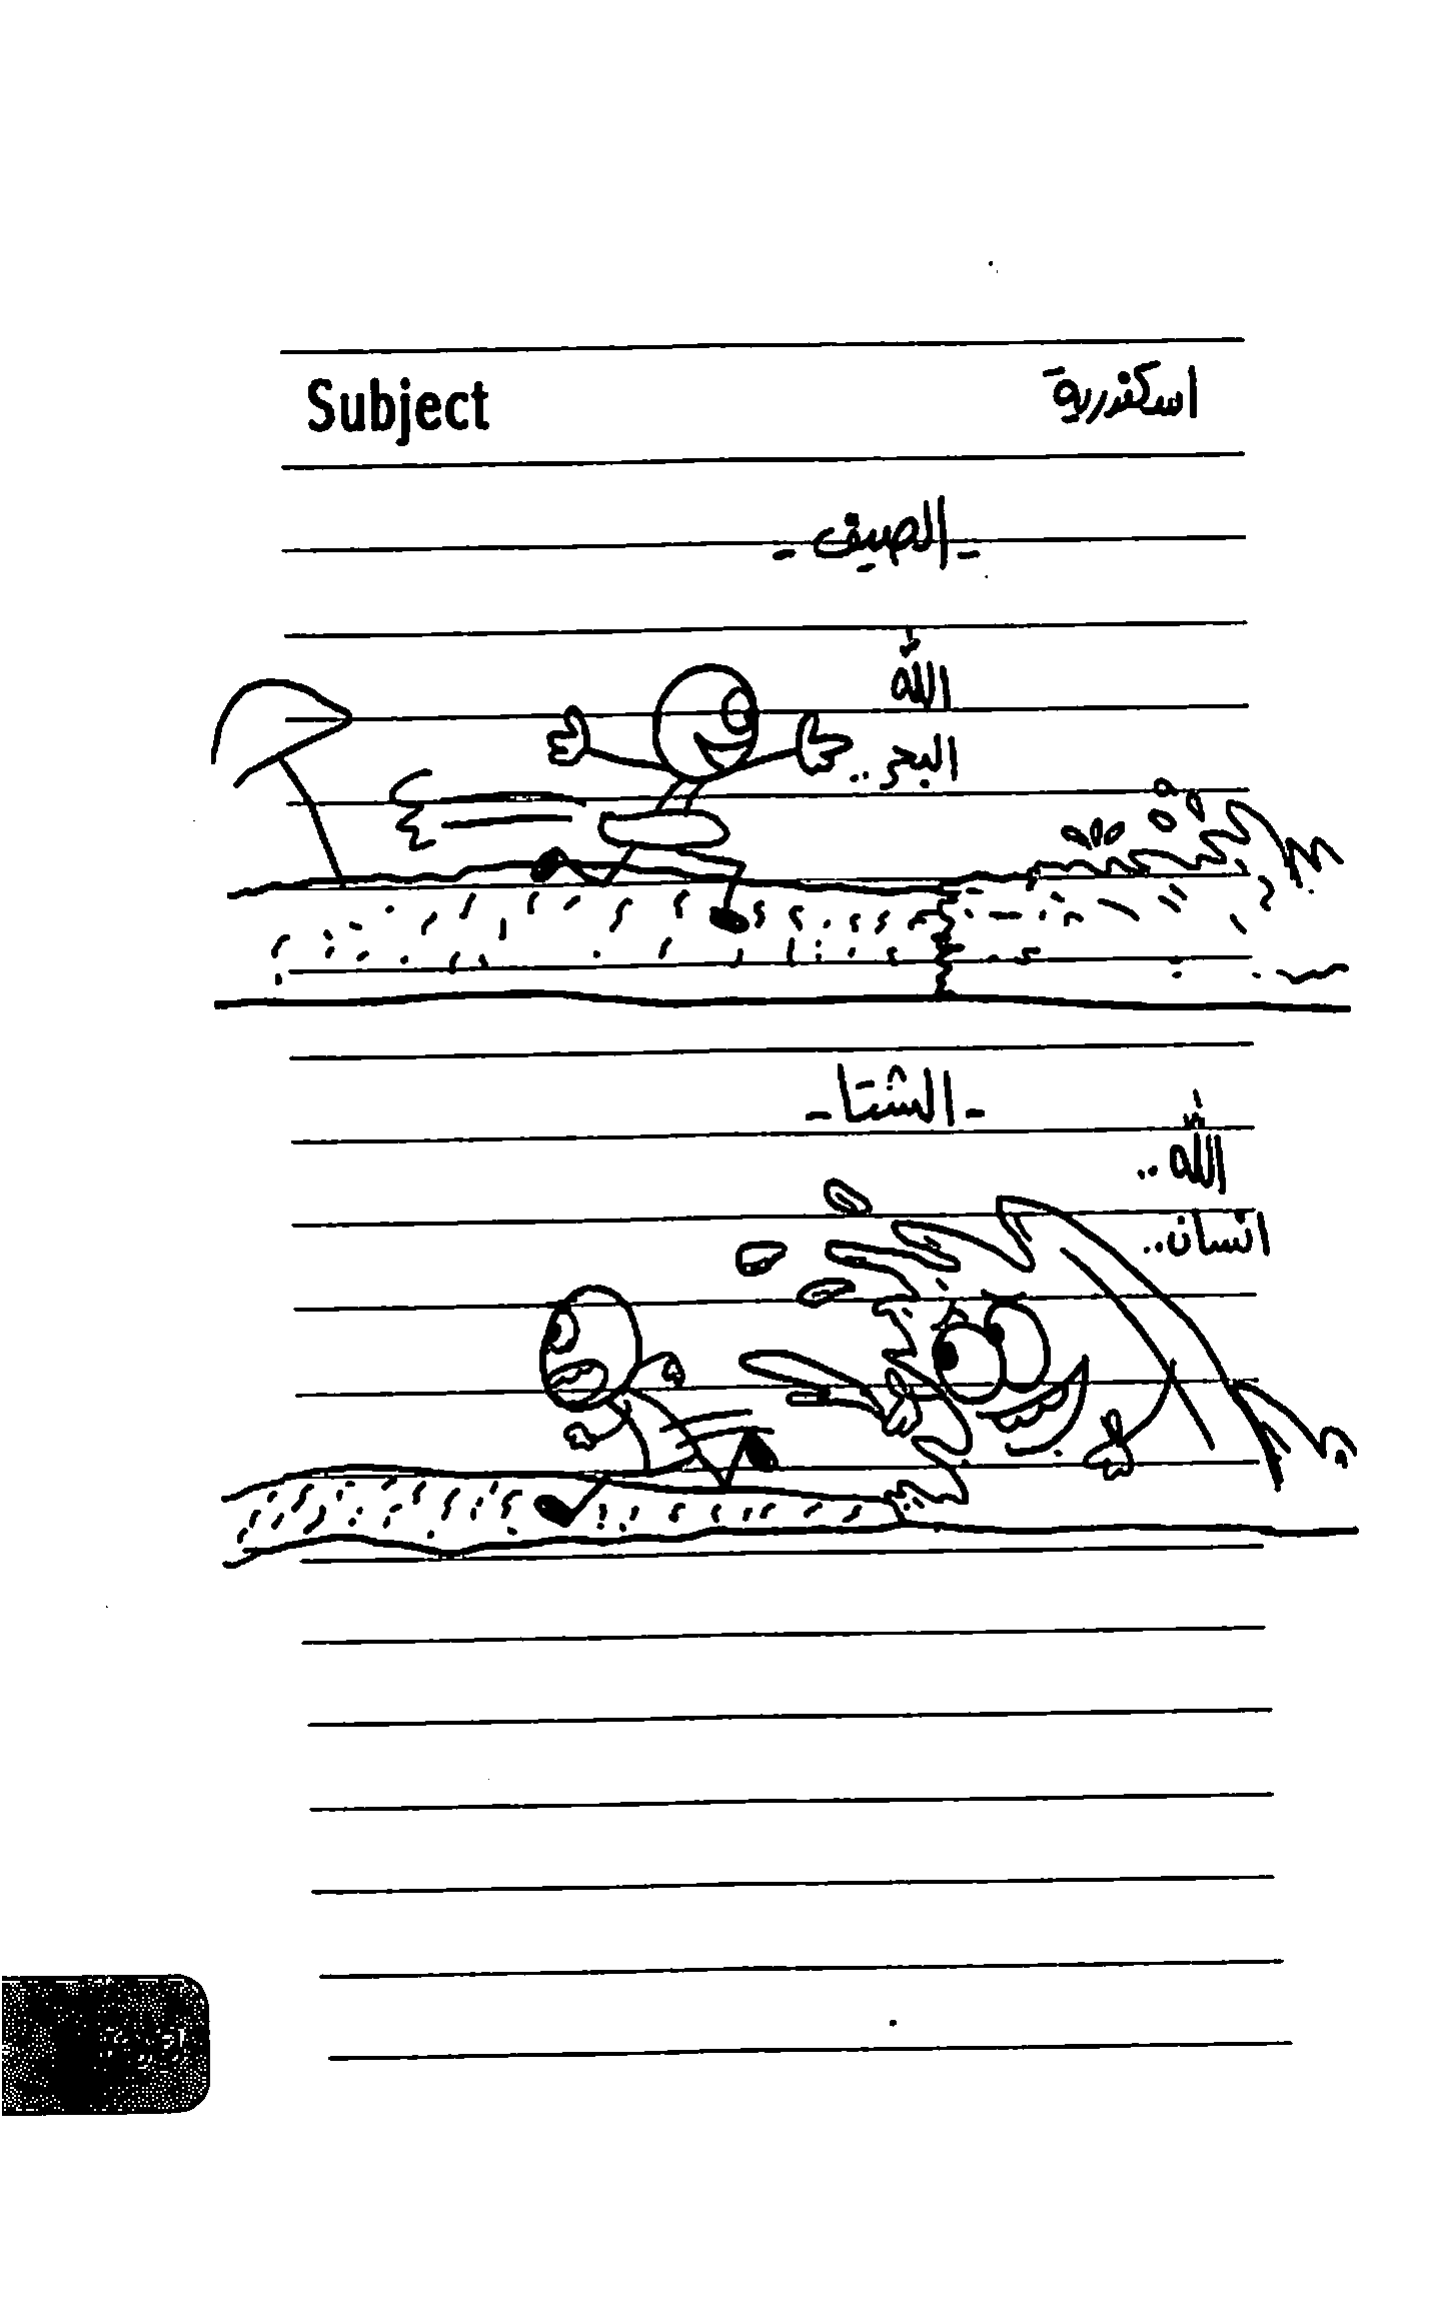 Subject اسكندرية
- الصيف -
الله
البحر ..
- الشتا -
الله ..
انسان ..